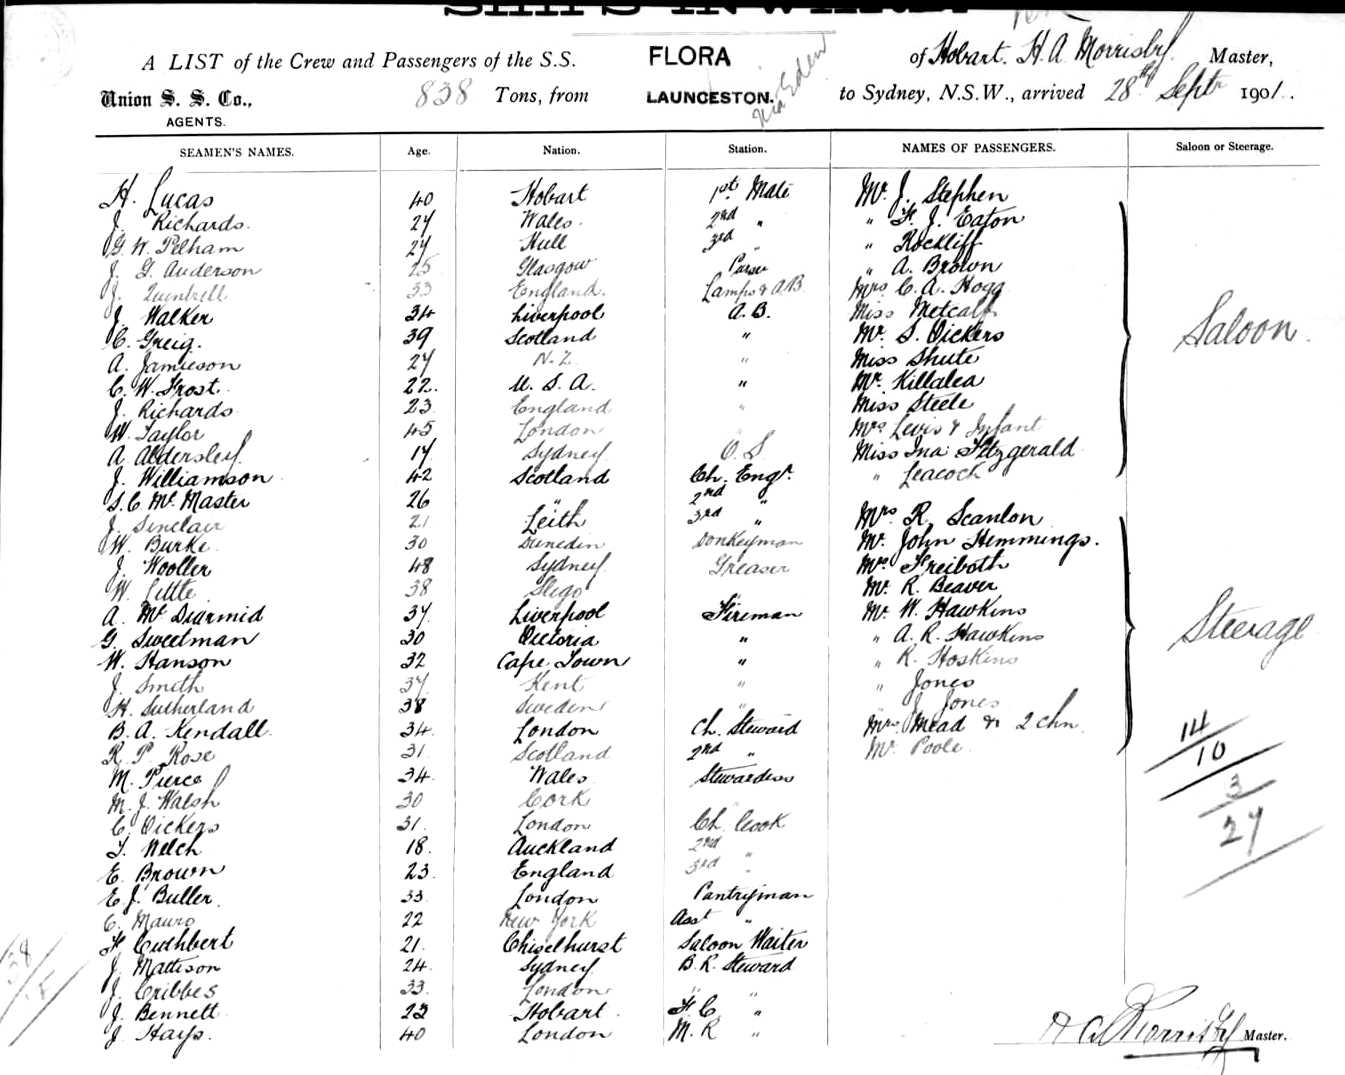 SHIPS INWARD.
A LIST of the Crew and Passengers of the S.S. FLORA of Hobart. H. A. Morrisby Master,
Union S. S. Co., AGENTS. 838 Tons, from LAUNCESTON. via Eden to Sydney, N.S.W., arrived 28th Septr 1901.
SEAMEN'S NAMES. Age. Nation. Station. NAMES OF PASSENGERS. Saloon or Steerage.
H. Lucas 40 Hobart 1st Mate Mr J. Stephen
J. Richards. 27 Wales. 2nd " " F. J. Eaton
G. W. Pelham 27 Hull 3rd " " Rockliff
J. G. Anderson 25 Glasgow Purser " A. Brown
J. 33 England. Lamps & A.B. Mrs C. A. Hogg
J. Walker 34 Liverpool A. B. Miss Metcalf
C. Greig. 39 Scotland " Mr S. Vickers Saloon.
A. Jamieson 27 N. Z. " Miss Shute
C. W. Frost. 22. U. S. A. " Mr Killalea
J. Richards 23 England " Miss Steele
W. Taylor 45 London Mrs Levis & Infant
A. Aldersley. 17 Sydney O. S Miss Ina Fitzgerald
J. Williamson 42 Scotland Ch. Engr. " Leacock
S. C. McMaster 26 " 2nd "
J. Sinclair 21 Leith 3rd " Mrs R. Scanlon
W. Burke 30 Dunedin Donkeyman Mr John Hemmings.
J. Wooller 48 Sydney Greaser Mrs Freiboth
W. Little 38 Sligo " Mr R. Beaver
A. McDiarmid 37 Liverpool Fireman Mr W. Hawkins
G. Sweetman 30 Victoria " " A. R. Hawkins Steerage
W. Hanson 32 Cape Town " " R. Hoskins
J. Smith 37 Kent " " Jones
H. Sutherland 38 Sweden " " J. Jones
B. A. Kendall 34 London Ch. Steward Mrs Mead & 2 chn. 14
R. P. Rose 31 Scotland 2nd " Mr Poole 10
M. Pierce 34 Wales Stewardess 3
M. J. Walsh 30 Cork "
C. Vickers 31. London Ch. Cook 27
T. Welch 18. Auckland 2nd "
E. Brown 23. England 3rd "
E. J. Buller. 33 London Pantryman
C. Mauro 22 New York Asst "
F. Cuthbert 21. Chiselhurst Saloon Waiter
J. Mattison 24 Sydney B. R. Steward
J. Cribbes 33. London " "
J. Bennett 23 Hobart F. C "
J. Hays. 40 London M. R "
H A Morrisby Master.